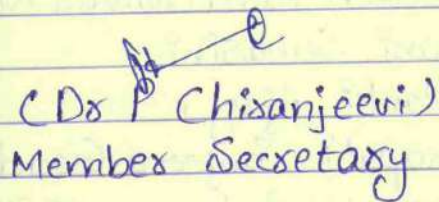 (Dr P Chiranjeevi)
Member Secretary